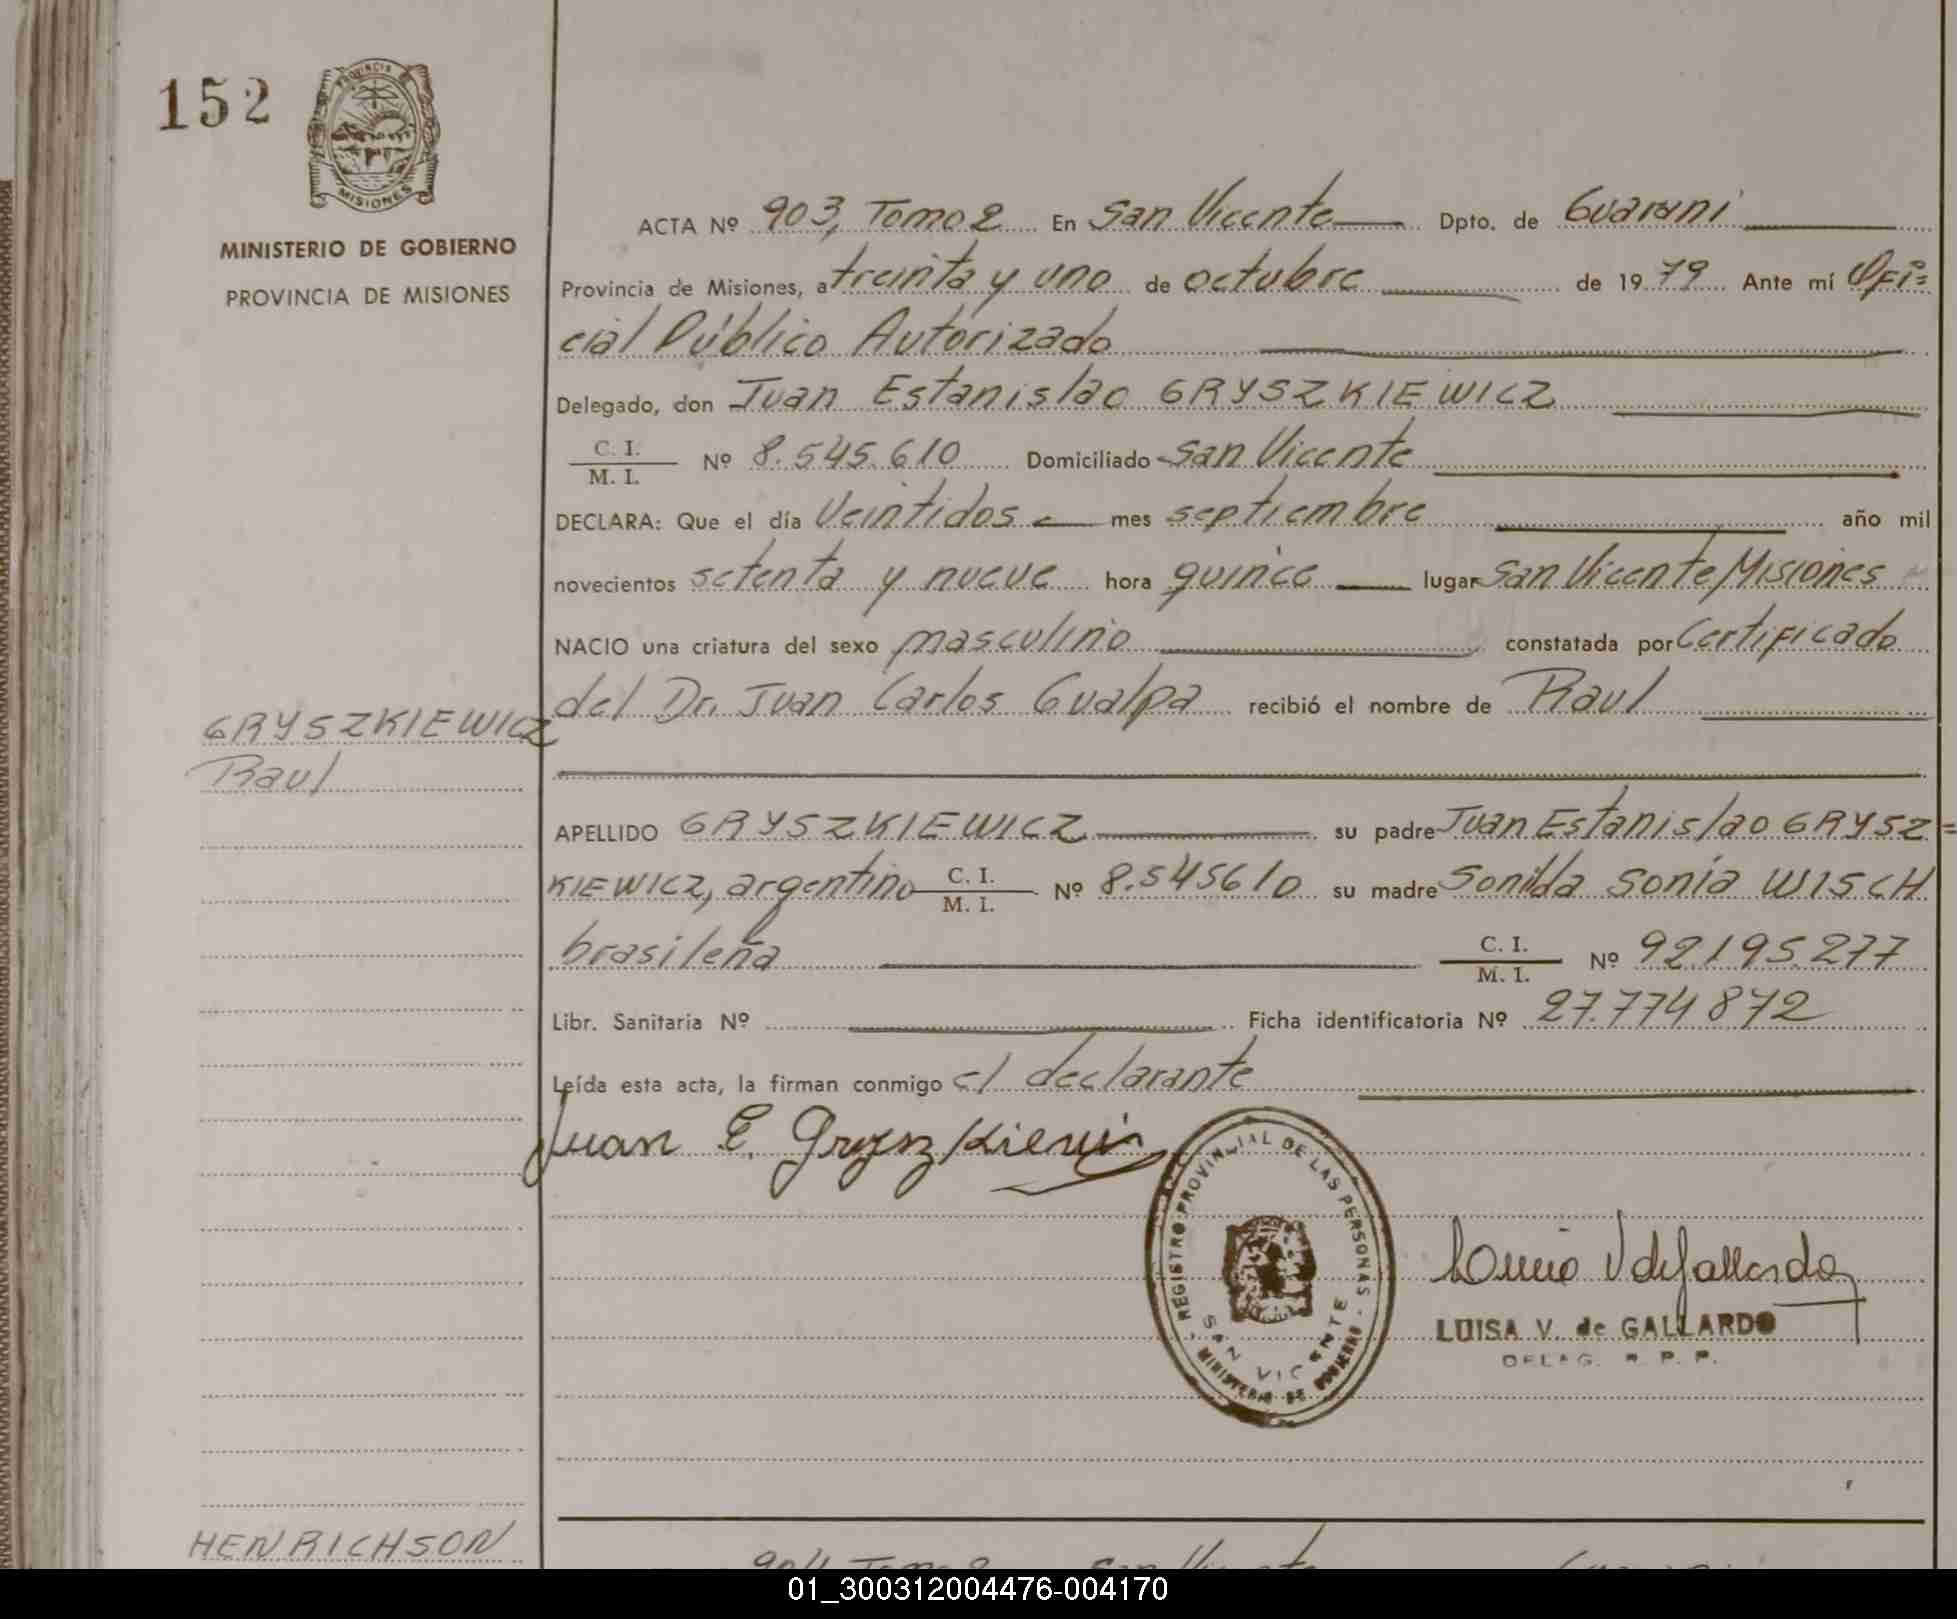 152
PROVINCIA DE
MISIONES
MINISTERIO DE GOBIERNO
PROVINCIA DE MISIONES
ACTA Nº 903, Tomo 2 En San Vicente Dpto. de Guaraní
Provincia de Misiones, a treinta y uno de octubre de 1979 Ante mí Ofi=
cial Público Autorizado
Delegado, don Juan Estanislao GRYSZKIEWICZ
C. I.
M. I. Nº 8.545.610 Domiciliado San Vicente
DECLARA: Que el día Veintidos mes septiembre año mil
novecientos setenta y nueve hora quince lugar San Vicente, Misiones
NACIO una criatura del sexo masculino constatada por Certificado
del Dr. Juan Carlos Gualpa recibió el nombre de Raul
GRYSZKIEWICZ
Raul
APELLIDO GRYSZKIEWICZ su padre Juan Estanislao GRYSZ=
KIEWICZ, argentino C. I. M. I. Nº 8.545610 su madre Sonilda Sonia WISCH
brasileña C. I. M. I. Nº 92.195.277
Libr. Sanitaria Nº Ficha identificatoria Nº 27.774872
Leída esta acta, la firman conmigo el declarante
Juan E. Gryszkiewicz
REGISTRO PROVINCIAL DE LAS PERSONAS
SAN VICENTE
MINISTERIO DE GOBIERNO
Luisa V de Gallardo
LUISA V. de GALLARDO
DELEG. R. P. P.
HENRICHSON
904 Tomo 2 San Vicente Guaraní
01_300312004476-004170